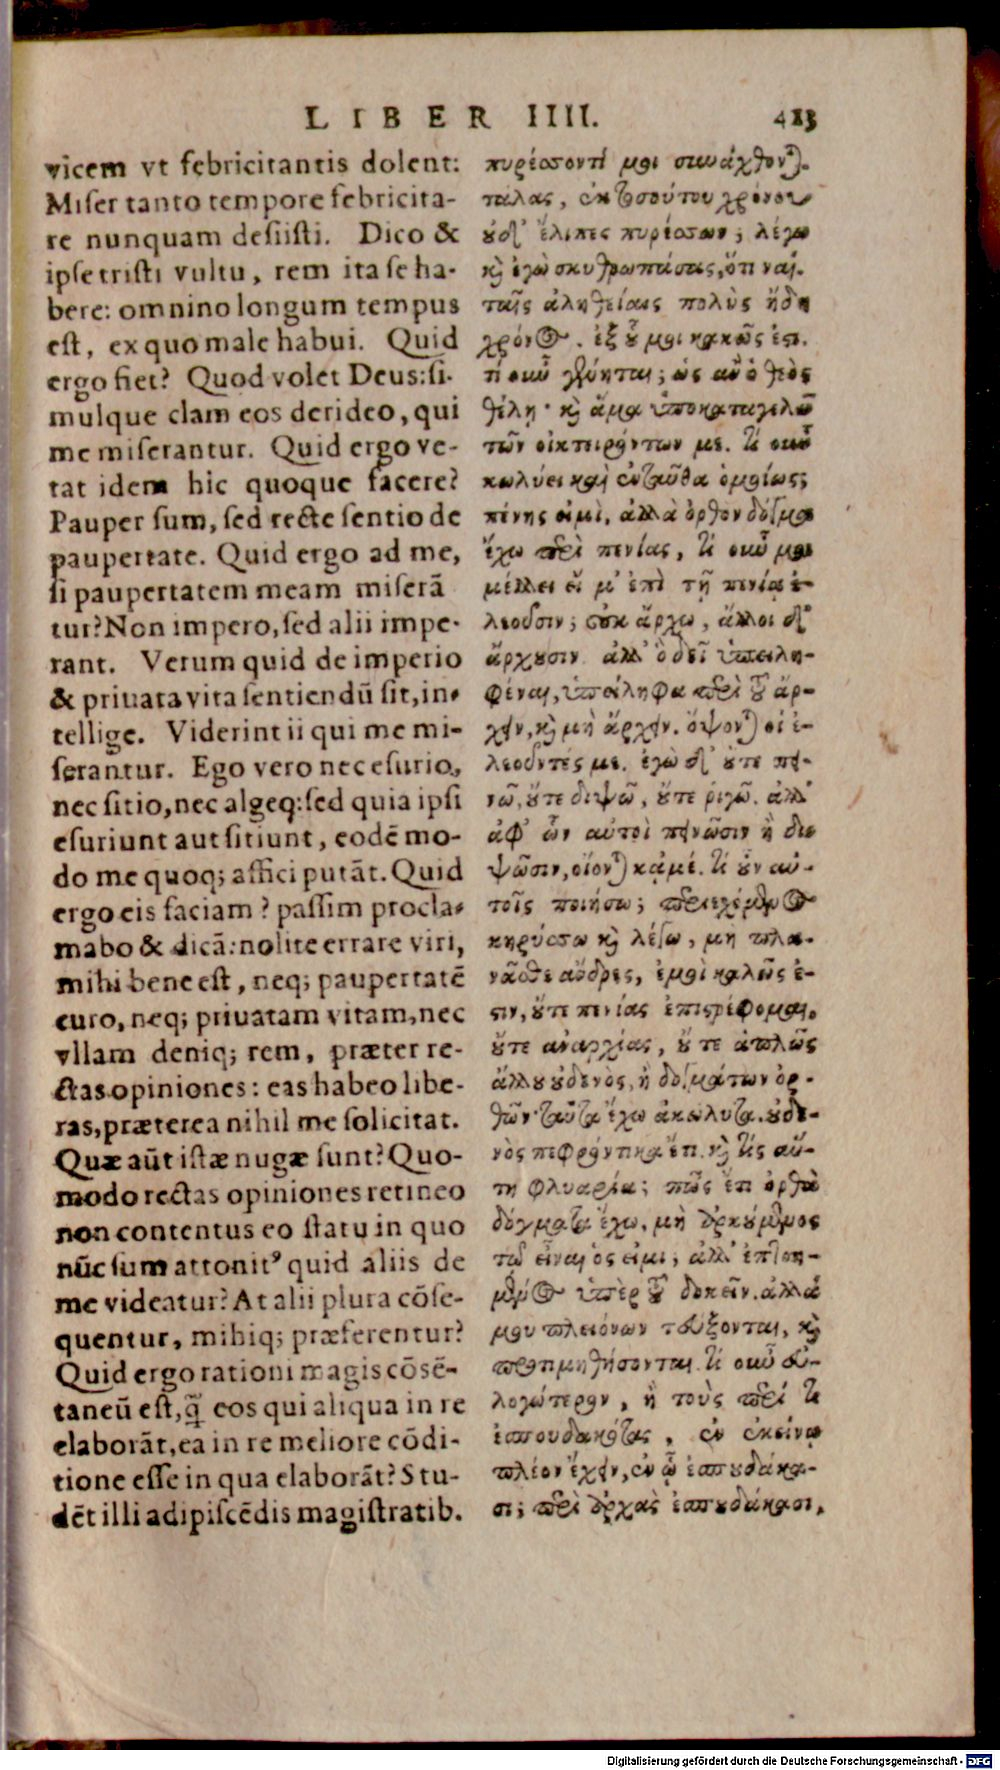 LIBER IIII. 413
vicem vt febricitantis dolent:
Miser tanto tempore febricita-
re nunquam desiisti. Dico &
ipse tristi vultu, rem ita se ha-
bere: omnino longum tempus
est, ex quo male habui. Quid
ergo fiet? Quod volet Deus: si-
mulque clam eos derideo, qui
me miserantur. Quid ergo ve-
tat idem hic quoque facere?
Pauper sum, sed recte sentio de
paupertate. Quid ergo ad me,
si paupertatem meam miserā
tur? Non impero, sed alii impe-
rant. Verum quid de imperio
& priuata vita sentiendū sit, in-
tellige. Viderint ii qui me mi-
serantur. Ego vero nec esurio,
nec sitio, nec algeo: sed quia ipsi
esuriunt aut sitiunt, eodē mo-
do me quoq; affici putāt. Quid
ergo eis faciam? passim procla-
mabo & dicā: nolite errare viri,
mihi bene est, neq; paupertatē
curo, neq; priuatam vitam, nec
vllam deniq; rem, præter re-
ctas opiniones: eas habeo libe-
ras, præterea nihil me solicitat.
Quæ aūt istæ nugæ sunt? Quo-
modo rectas opiniones retineo
non contentus eo statu in quo
nūc sum attonit⁹ quid aliis de
me videatur? At alii plura cōse-
quentur, mihiq; præferentur?
Quid ergo rationi magis cōsē-
taneū est, q̄ eos qui aliqua in re
elaborāt, ea in re meliore cōdi-
tione esse in qua elaborāt? Stu-
dēt illi adipiscēdis magistratib.
πυρέσσοντί μοι συνάχθονται.
τάλας, ἐκ τοσούτου χρόνου
οὐδ' ἔλιπες πυρέσσων; λέγω
καὶ ἐγὼ σκυθρωπάσας, ὅτι ναί.
ταῖς ἀληθείαις πολὺς ἤδη
χρόνος. ἐξ οὗ μοι κακῶς ἐστι.
τί οὖν γένηται; ὡς ἂν ὁ θεὸς
θέλῃ· καὶ ἅμα ὑποκαταγελῶ
τῶν οἰκτειρόντων με. τί οὖν
κωλύει καὶ ἐνταῦθα ὁμοίως;
πένης εἰμὶ, ἀλλὰ ὀρθὸν δόγμα
ἔχω περὶ πενίας, τί οὖν μοι
μέλλει εἴ μ' ἐπὶ τῇ πενίᾳ ἐ-
λεοῦσιν; οὐκ ἄρχω, ἄλλοι δ'
ἄρχουσιν. ἀλλ' ὃ δεῖ ὑπειλη-
φέναι, ὑπείληφα περὶ τοῦ ἄρ-
χειν, καὶ μὴ ἄρχειν. ὄψονται οἱ ἐ-
λεοῦντές με. ἐγὼ δ' οὔτε πει-
νῶ, οὔτε διψῶ, οὔτε ῥιγῶ. ἀλλ'
ἀφ' ὧν αὐτοὶ πεινῶσιν ἢ δι-
ψῶσιν, οἴονται κἀμέ. τί οὖν αὐ-
τοῖς ποιήσω; περιερχόμενος
κηρύσσω καὶ λέγω, μὴ πλα-
νᾶσθε ἄνδρες, ἐμοὶ καλῶς ἐ-
στιν, οὔτε πενίας ἐπιστρέφομαι,
οὔτε ἀναρχίας, οὔτε ἁπλῶς
ἄλλου οὐδενὸς, ἢ δογμάτων ὀρ-
θῶν· ταῦτα ἔχω ἀκώλυτα. οὐδε-
νὸς πεφρόντικα ἔτι. καὶ τίς αὕ-
τη φλυαρία; πῶς ἔτι ὀρθὰ
δόγματα ἔχω, μὴ ἀρκούμενος
τῷ εἶναι ὅς εἰμι, ἀλλ' ἐπτοη-
μένος ὑπὲρ τοῦ δοκεῖν. ἀλλά
μου πλειόνων τεύξονται, καὶ
προτιμηθήσονται. τί οὖν εὐ-
λογώτερον, ἢ τοὺς περί τι
ἐσπουδακότας, ἐν ἐκείνῳ
πλέον ἔχειν, ἐν ᾧ ἐσπουδάκα-
σι; περὶ ἀρχὰς ἐσπουδάκασι,
Digitalisierung gefördert durch die Deutsche Forschungsgemeinschaft - DFG